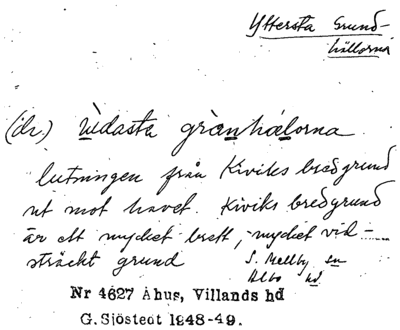 Yttersta Grund-
hällorna
(dr.) ùdasta grànhælorna
lutningen från Kiviks bredgrund
ut mot havet. Kiviks bredgrund
är ett mycket brett, mycket vid-
sträckt grund
S. Mellby sn
Albo hd
Nr 4627 Åhus, Villands hd
G. Sjöstedt 1948-49.